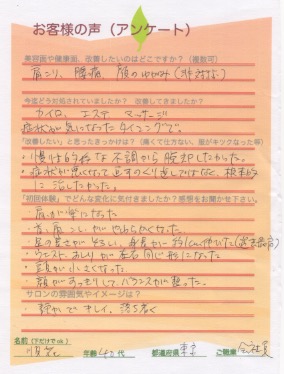 お客様の声（アンケート）
美容面や健康面、改善したいのはどこですか？（複数可）
肩こり、腰痛 顔のゆがみ（非対称）
今迄どう対処されていましたか？ 改善してきましたか？
カイロ、エステ、マッサージ
症状が気になったタイミングで。
「改善したい」と思ったきっかけは？（痛くて仕方ない、服がキツクなった等）
・慢性的な不調から脱却したかった。
・症状が悪くなって直すのくり返しではなく、根本的
に治したかった。
「初回体験」でどんな変化に気付きましたか？感想をお聞かせ下さい。
・肩が楽になった
・首、肩こしがやわらかくなった。
・足の長さがそろい、身長が
・ウエスト、おしりが左右同じ形になった
・頭が小さくなった。
・顔がすっきりして、バランスが整った。
サロンの雰囲気やイメージは？
・静かでキレイ、落ち着く
名前（下だけでok）
年齢 40代 都道府県 東京 ご職業 会社員